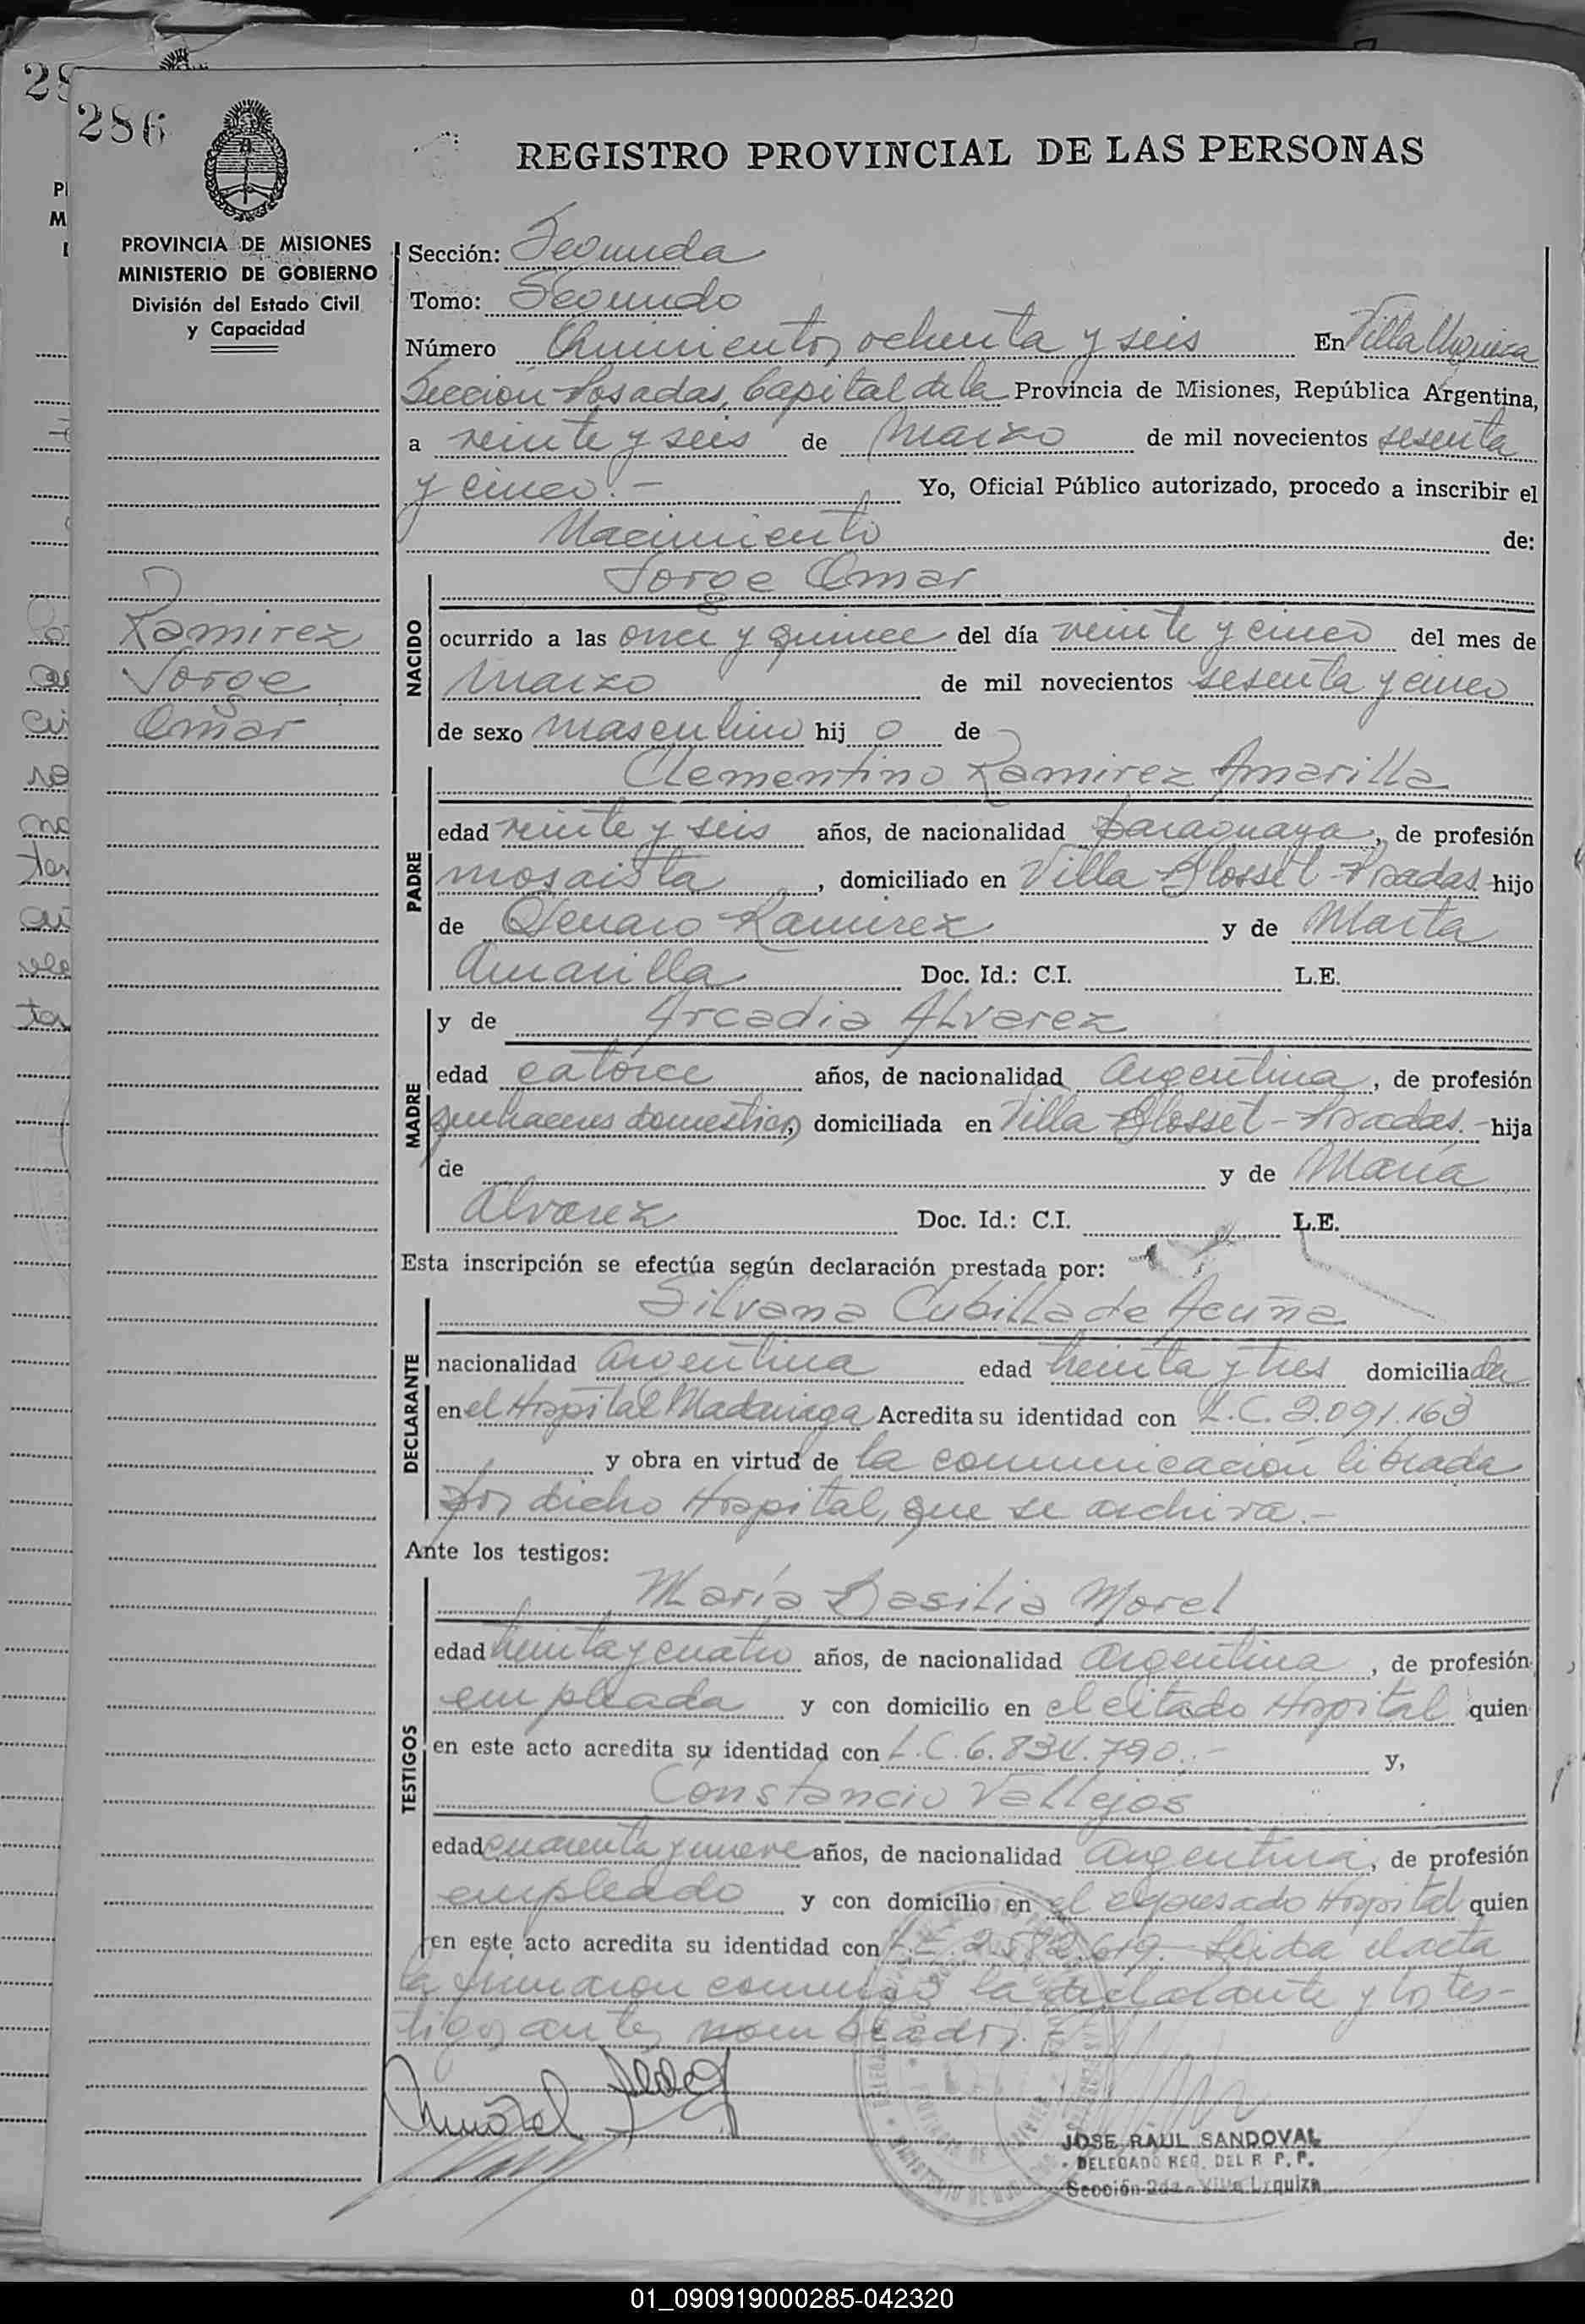 286
REGISTRO PROVINCIAL DE LAS PERSONAS
PROVINCIA DE MISIONES
MINISTERIO DE GOBIERNO
División del Estado Civil
y Capacidad
Sección: Segunda
Tomo: Segundo
Número Quinientos ochenta y seis En Villa Urquiza
Sección Posadas, Capital de la Provincia de Misiones, República Argentina,
a veinte y seis de Marzo de mil novecientos sesenta
y cinco.- Yo, Oficial Público autorizado, procedo a inscribir el
Nacimiento de:
Ramirez
Jorge
Omar
NACIDO
Jorge Omar
ocurrido a las once y quince del día veinte y cinco del mes de
Marzo de mil novecientos sesenta y cinco
de sexo masculino hijo de
PADRE
Clementino Ramirez Amarilla
edad veinte y seis años, de nacionalidad paraguaya, de profesión
mosaista, domiciliado en Villa Blosset-Posadas hijo
de Genaro Ramirez y de Marta
Amarilla Doc. Id.: C.I. L.E.
MADRE
y de Arcadia Alvarez
edad catorce años, de nacionalidad argentina, de profesión
quehaceres domesticos, domiciliada en Villa Blosset-Posadas.- hija
de y de María
Alvarez Doc. Id.: C.I. L.E.
Esta inscripción se efectúa según declaración prestada por:
DECLARANTE
Silvana Cubilla de Acuña
nacionalidad argentina edad treinta y tres domiciliada
en el Hospital Madariaga Acredita su identidad con L.C. 2.091.163
y obra en virtud de la comunicacion librada
por dicho Hospital, que se archiva.-
Ante los testigos:
TESTIGOS
María Basilia Morel
edad treinta y cuatro años, de nacionalidad argentina, de profesión
empleada y con domicilio en el citado Hospital quien
en este acto acredita su identidad con L.C. 6.834.790.- y,
Constancio Vallejos
edad cuarenta y nueve años, de nacionalidad argentina, de profesión
empleado y con domicilio en el expresado Hospital quien
en este acto acredita su identidad con L.E. 2.582.619. Leida el acta
la firmaron conmigo la declarante y los tes-
tigos antes nombrados.-
JOSE RAUL SANDOVAL
DELEGADO REG. DEL R. P. P.
Sección 2da - Villa Urquiza
01_090919000285-042320